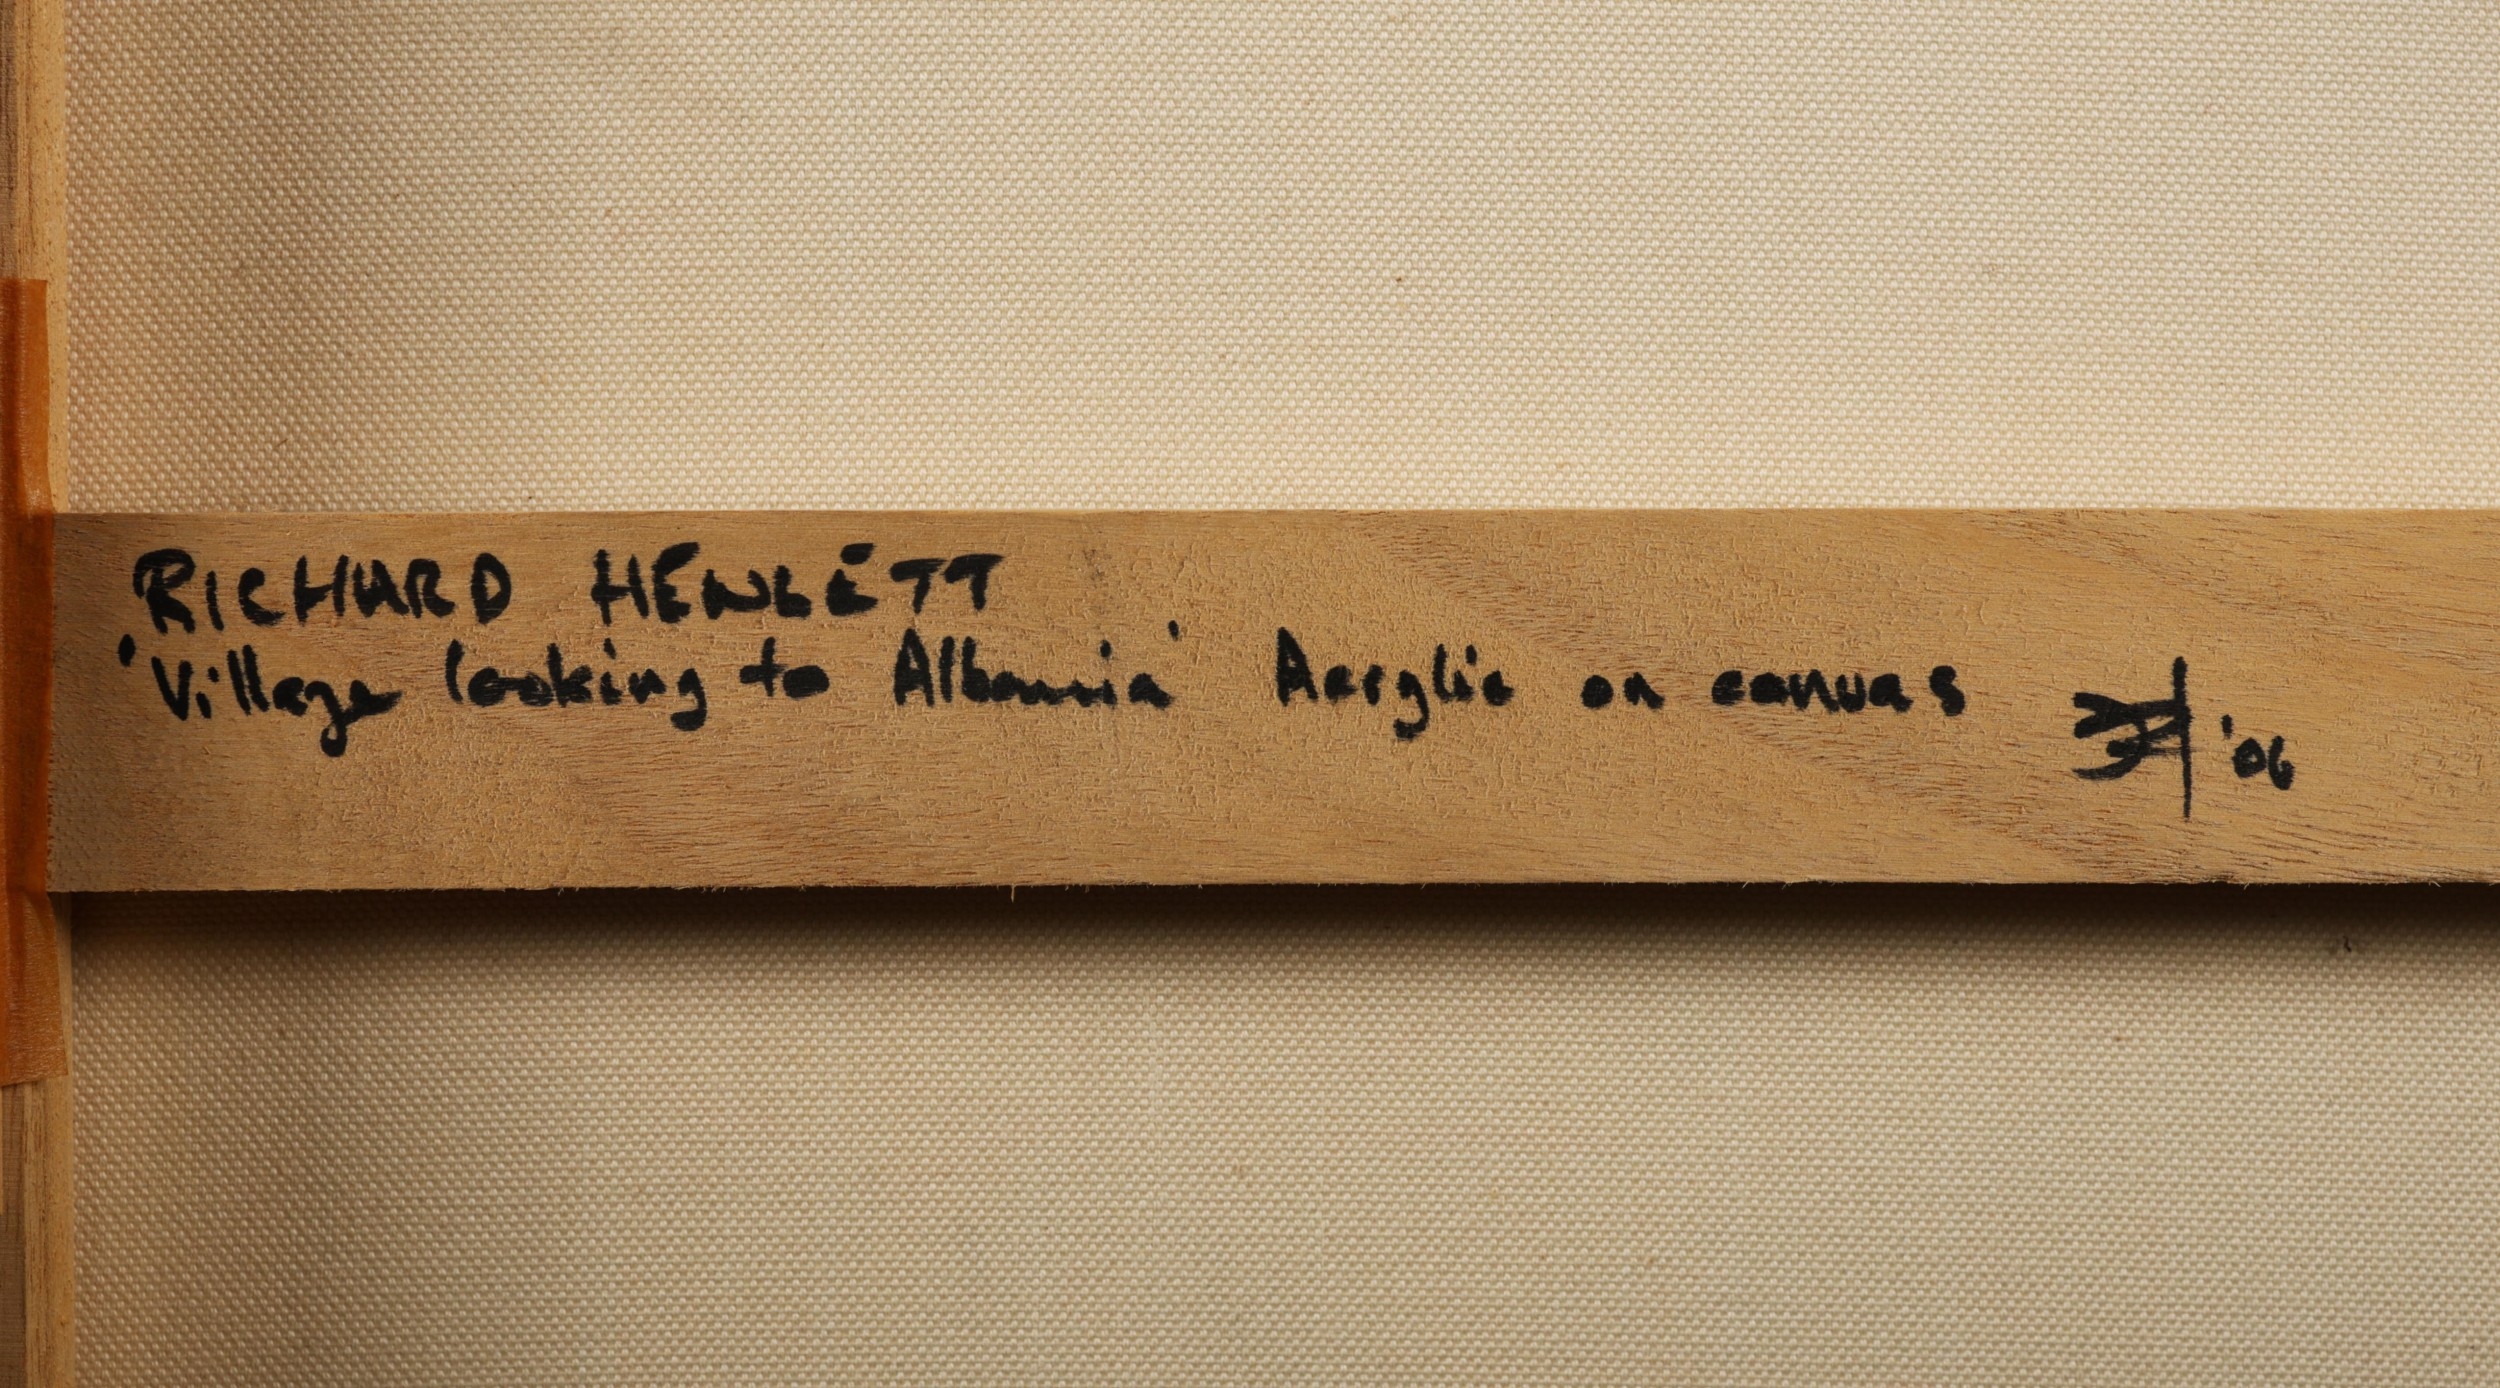 RICHARD HEWLETT
'Village looking to Albania' Acrylic on canvas '06